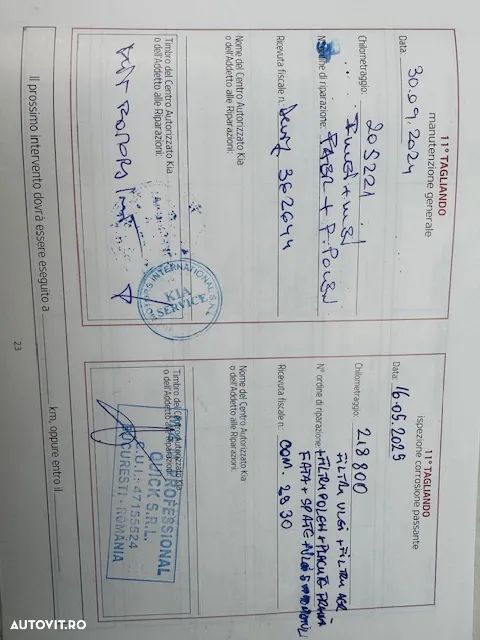 11° TAGLIANDO
manutenzione generale
Data: 30.09.2024
Chilometraggio: 205221
N° ordine di riparazione:
Ricevuta fiscale n.: 362644
Nome del Centro Autorizzato Kia
o dell'Addetto alle Riparazioni:
Timbro del Centro Autorizzato Kia
o dell'Addetto alle Riparazioni:
INTERNATIONAL S.R.L.
KIA
SERVICE
11° TAGLIANDO
ispezione corrosione passante
Data: 16.05.2025
Chilometraggio: 218800
FILTRU ULEI + FILTRU AER
N° ordine di riparazione: +FILTRU POLEN + PLACUTE FRANA
FATA + SPATE +
Ricevuta fiscale n.: COM. 2930
Nome del Centro Autorizzato Kia
o dell'Addetto alle Riparazioni:
Timbro del Centro Autorizzato Kia
o dell'Addetto alle Riparazioni:
PROFESSIONAL
QUICK S.R.L.
C.U.I.: 47155524
BUCURESTI - ROMÂNIA
Il prossimo intervento dovrà essere eseguito a km, oppure entro il
23
AUTOVIT.RO